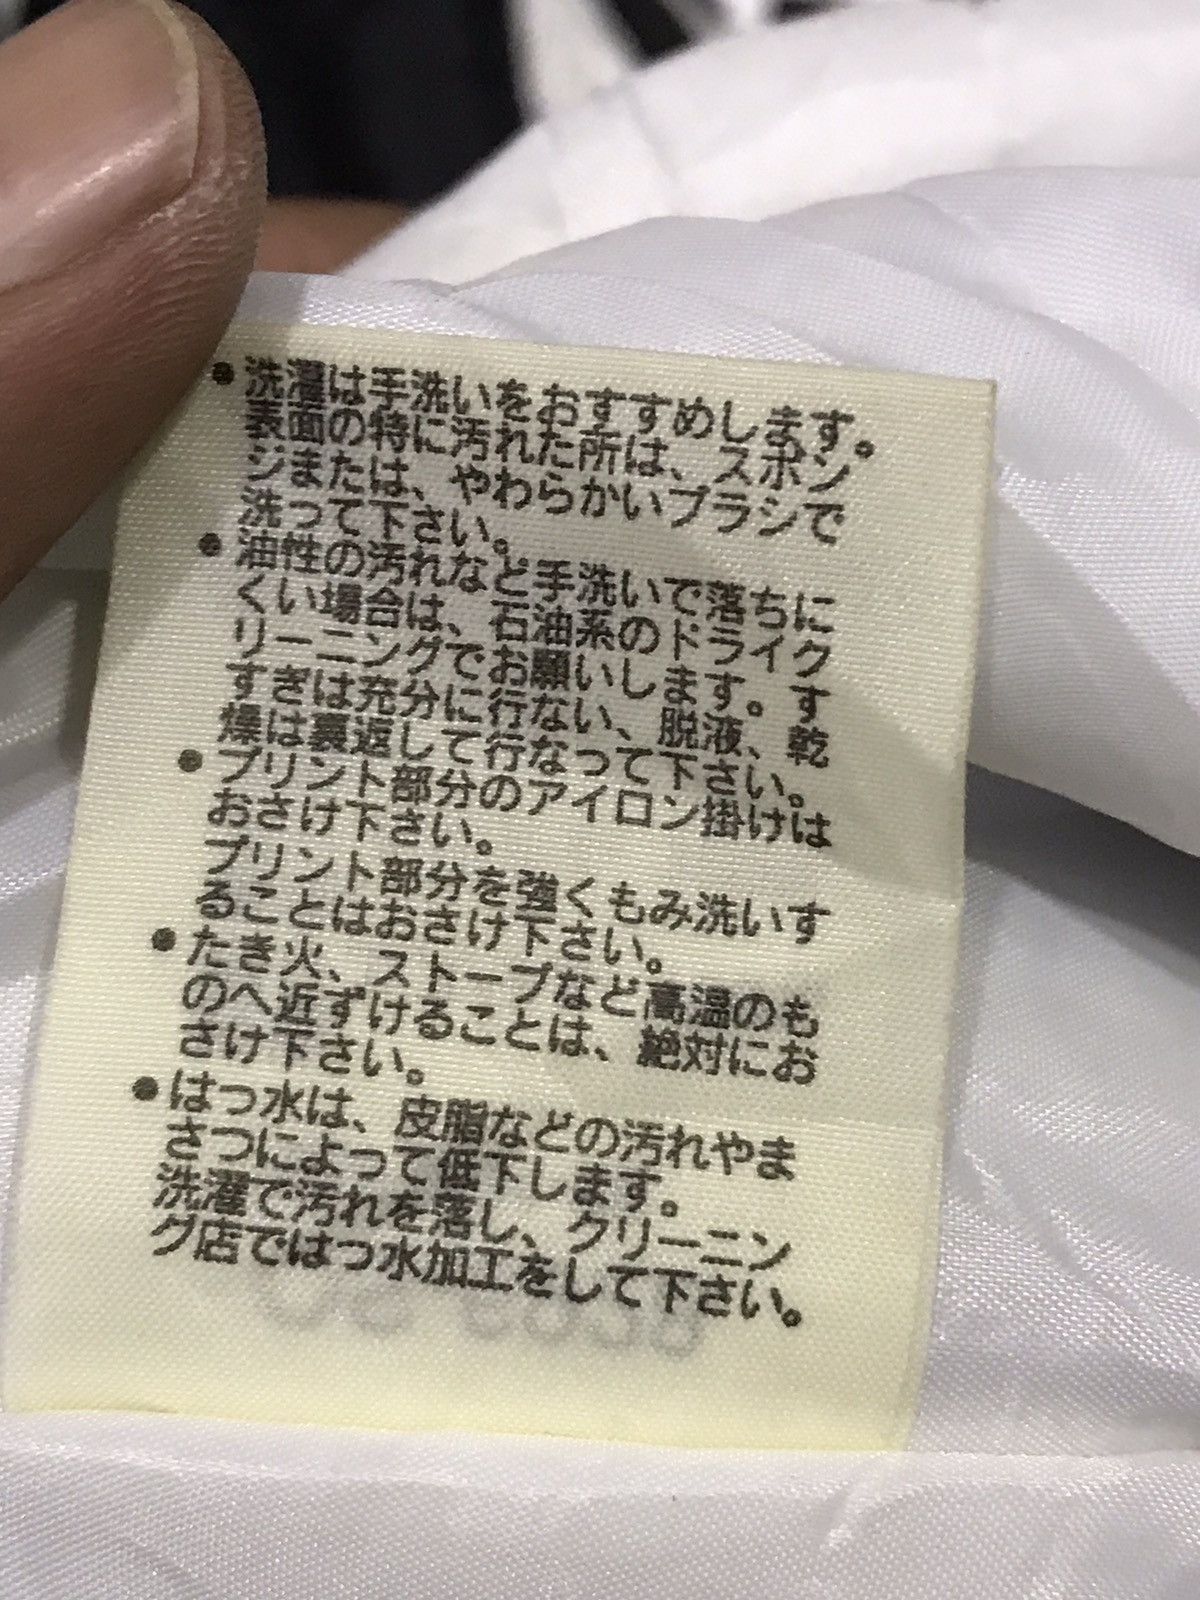 ●洗濯は手洗いをおすすめします。
表面の特に汚れた所は、スポン
ジまたは、やわらかいブラシで
洗って下さい。
●油性の汚れなど手洗いで落ちに
くい場合は、石油系のドライク
リーニングでお願いします。す
すぎは充分に行ない、脱液、乾
燥は裏返して行なって下さい。
●プリント部分のアイロン掛けは
おさけ下さい。
プリント部分を強くもみ洗いす
ることはおさけ下さい。
●たき火、ストーブなど高温のも
のへ近ずけることは、絶対にお
さけ下さい。
●はっ水は、皮脂などの汚れやま
さつによって低下します。
洗濯で汚れを落し、クリーニン
グ店ではっ水加工をして下さい。